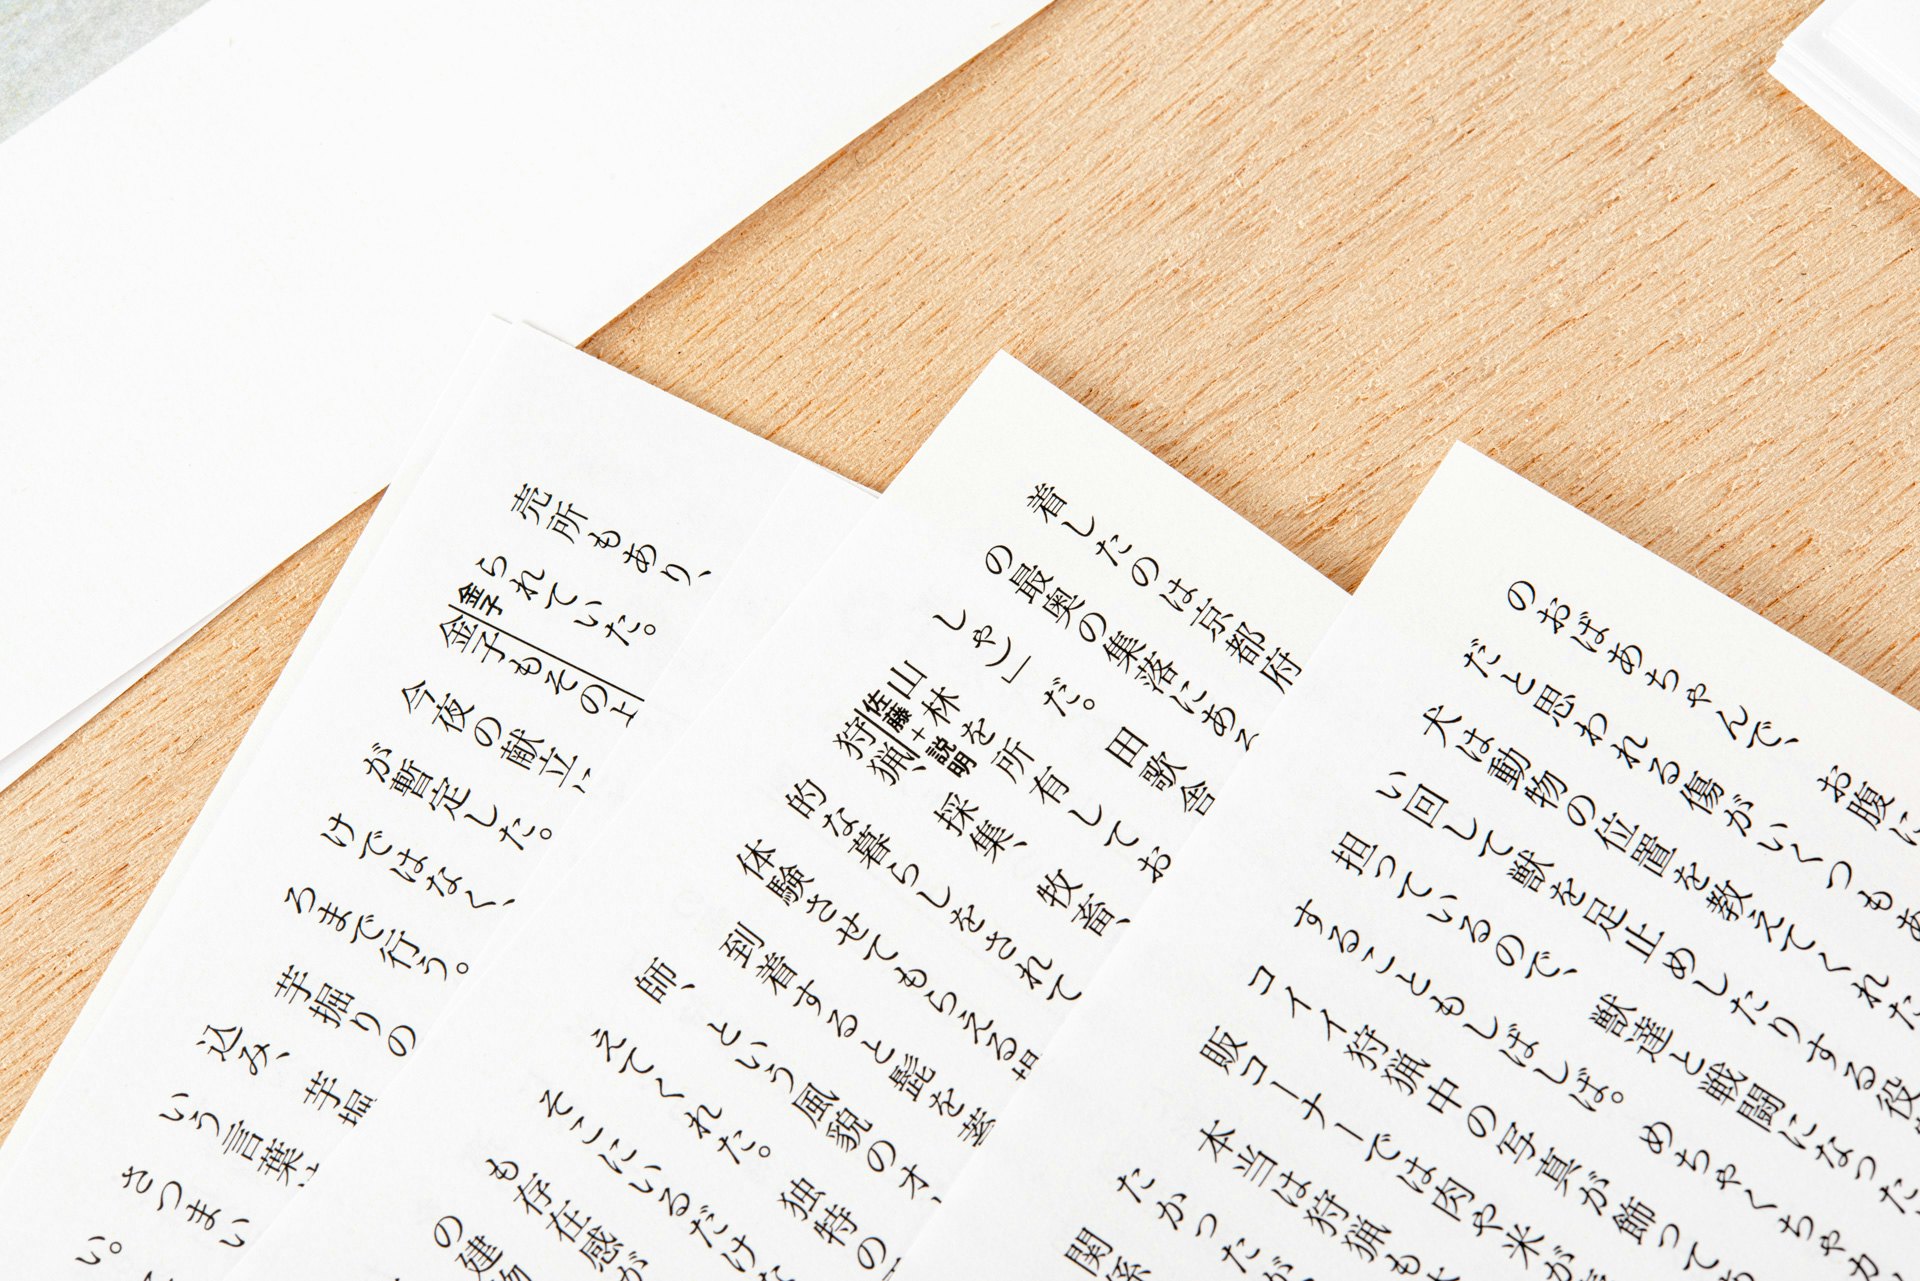 のおばあちゃんで、　お腹に
だと思われる傷がいくつもあ
犬は動物の位置を教えてくれた
い回して獣を足止めしたりする役
担っているので、　獣達と戦闘になった
することもしばしば。めちゃくちゃカ
コイイ狩猟中の写真が飾っても
販コーナーでは肉や米が
本当は狩猟も
たかったが
関係
着したのは京都府
の最奥の集落にある
しゃ）」だ。　田歌舎
山林を所有してお
佐藤+説明
狩猟、　採集、　牧畜、
的な暮らしをされて
体験させてもらえる
到着すると髭を
師、　という風貌のオ
えてくれた。　独特の
そこにいるだけ
も存在感が
の建物
売所もあり、
られていた。
金子
金子もその上
今夜の献立
が暫定した。
けではなく、
ろまで行う。
芋掘りの
込み、芋掘
いう言葉
さつまい
い。